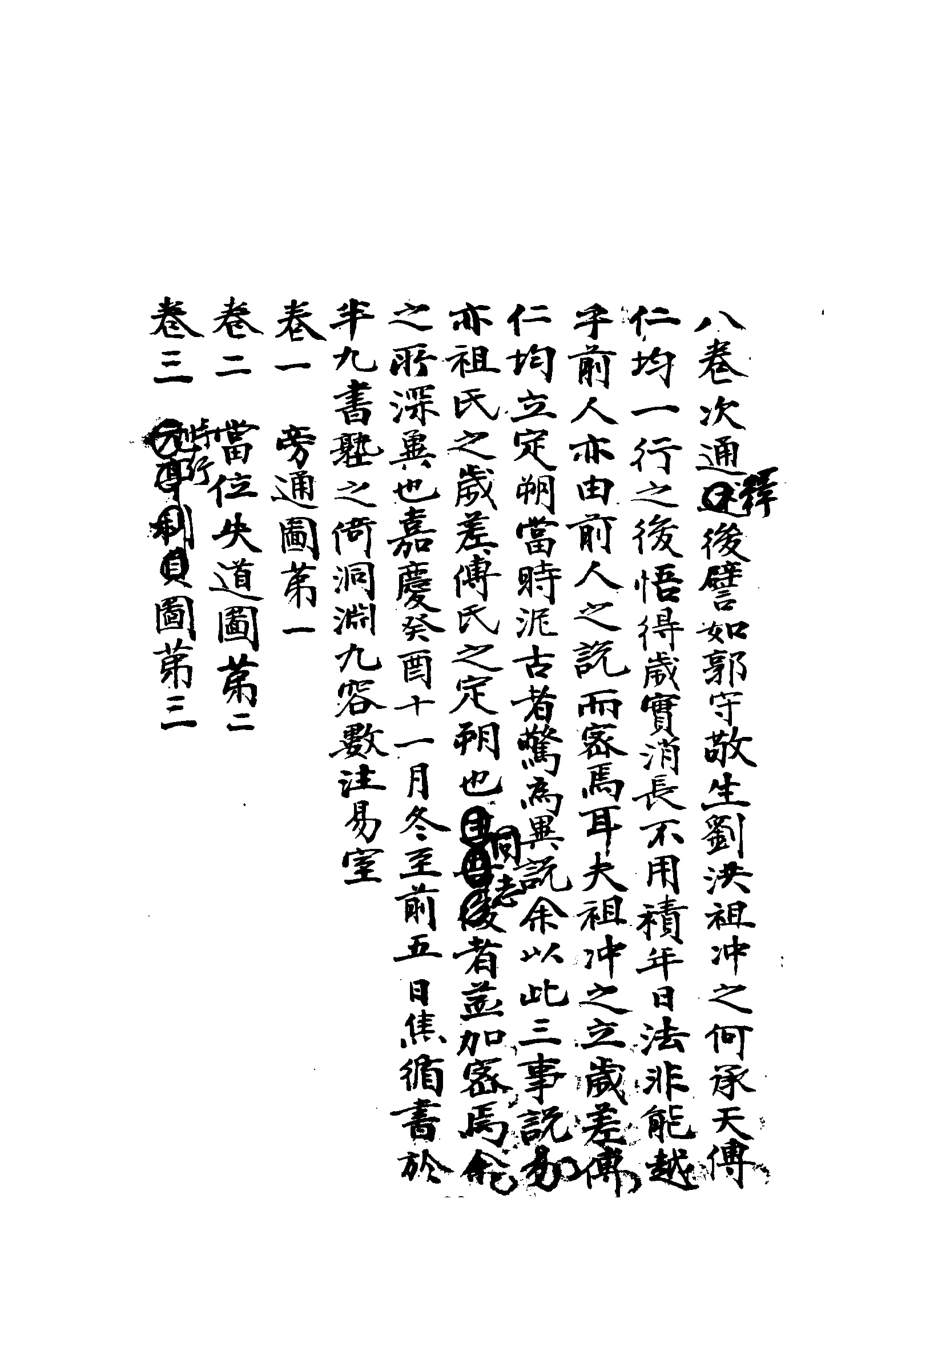 八卷次通釋後譬如郭守敬生劉洪祖冲之何承天傅
仁均一行之後悟得歲實消長不用積年日法非能越
乎前人亦由前人之說而密焉耳夫祖冲之立歲差傅
仁均立定朔當時泥古者驚為異說余以此三事說易
亦祖氏之歲差傅氏之定朔也同志者並加密焉余
之所深冀也嘉慶癸酉十一月冬至前五日焦循書於
半九書塾之倚洞淵九容數注易室
卷一 旁通圖第一
卷二 當位失道圖第二
卷三 時行圖第三